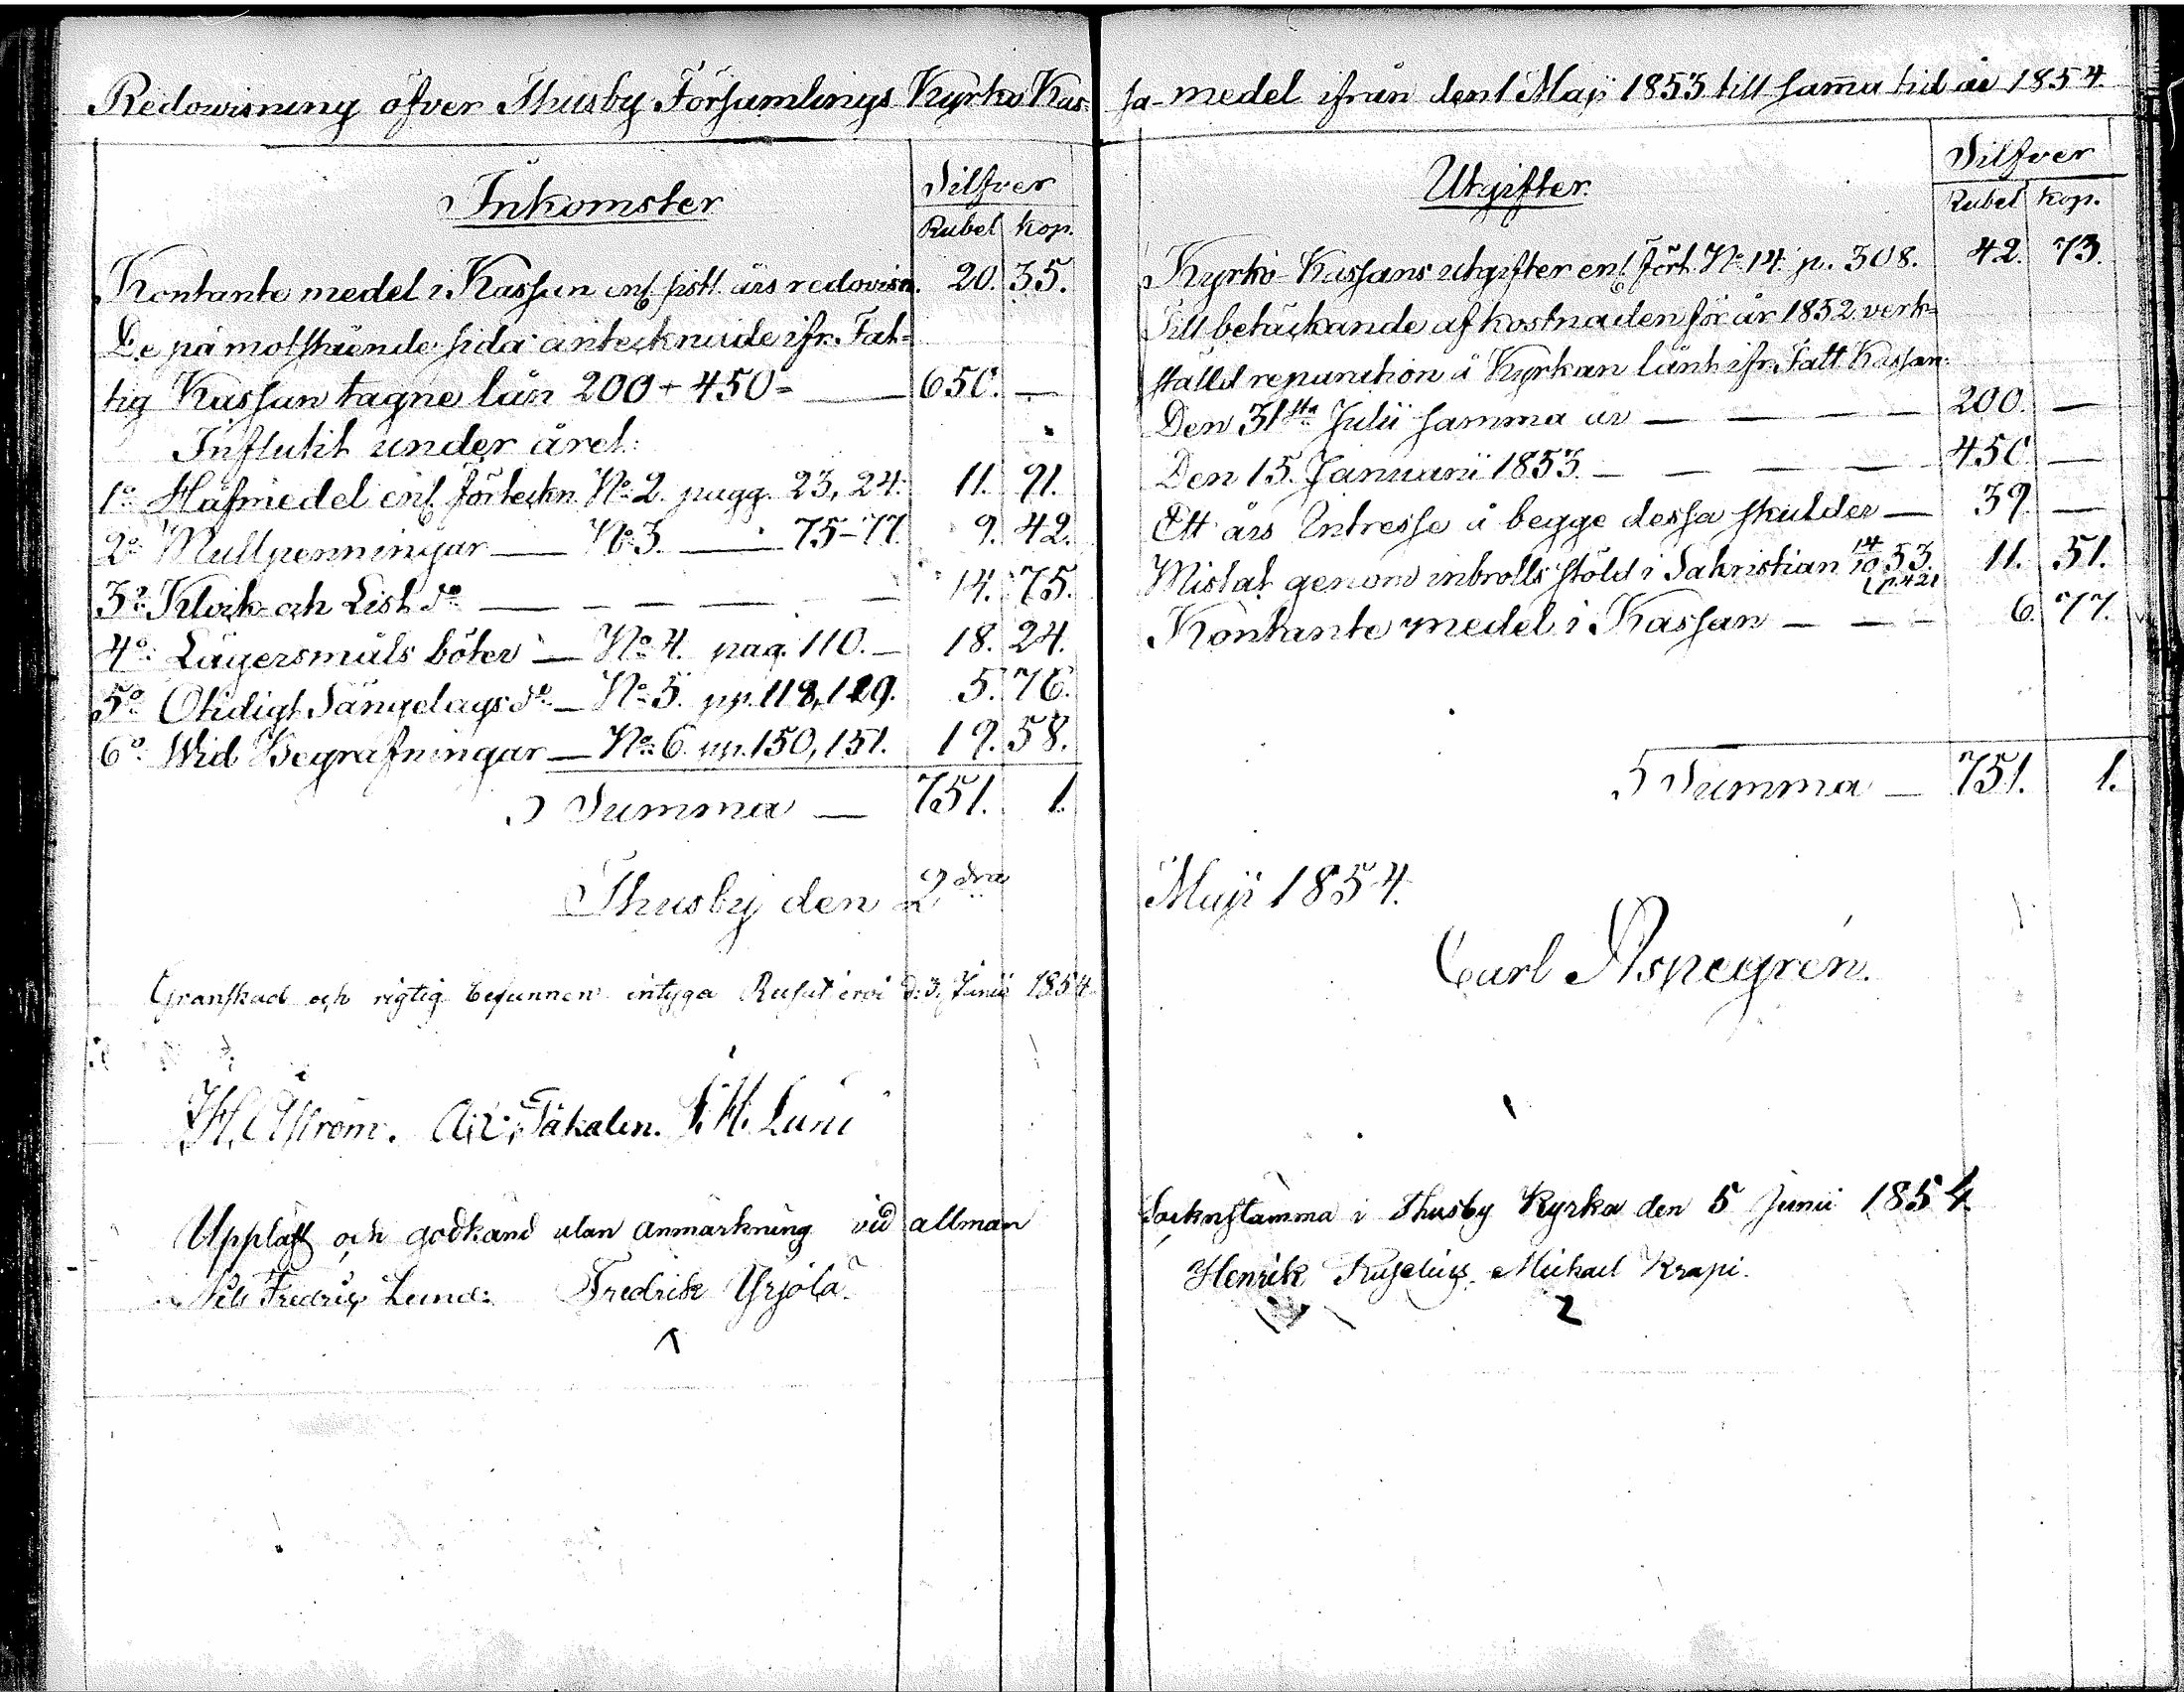 Redowisning öfver Thusby Församlings Kyrko Kas=
Inkomster
Silfver
Rubel kop.
Kontante medel i Kassan enl. sistl. års redovisn. 20. 35.
De på motstående sida antecknade ifr. Fat=
tig Kassan tagne lån 200 + 450 = — 650. —
Influtit under året:
1º Håfmedel enl. förteckn. Nº 2. pagg. 23, 24. 11. 91.
2º Mullpenningar — Nº 3. — 75-77. 9. 42.
3º Klock- och List dº — — — — 14. 75.
4º Lägersmåls böter — Nº 4. pag. 110. — 18. 24.
5º Otidigt Sängelags dº — Nº 5. pp. 118, 119. 5. 76.
6º Wid Begrafningar — Nº 6. pp. 150, 151. 19. 58.
Summa — 751. 1.
Thusby den 2dra
Granskad och rigtig befunnen intyga Rusutjervi d: 3. Junii 1854
H. Åström. Täkalen. F. H. Lund
Uppläst och godkänd utan anmärkning vid allmän
Nils Fredrik Lund. Fredrik Yrjölä.
sa-medel ifrån den 1 Maji 1853 till samma tid år 1854.
Utgifter.
Silfver
Rubel kop.
Kyrko-Kassans utgifter enl. fört. Nº 14. p. 308. 42. 73.
Till betäckande af kostnaden för år 1852 verk=
ställd reparation å Kyrkan lånt ifr. Fatt. Kassan:
Den 31sta Julii samma år — — — — 200. —
Den 15. Januarii 1853. — — — — 450. —
Ett års Intresse å begge dessa skulder — 39. —
Mistat genom inbrotts stöld i Sakristian 14/10 53. 11. 51.
Kontante medel i Kassan — — — 6. 77.
Summa — 751. 1.
Maji 1854.
Carl Aspegrén.
Socknstämma i Thusby Kyrka den 5 Junii 1854.
Henrik Michael Krapi.